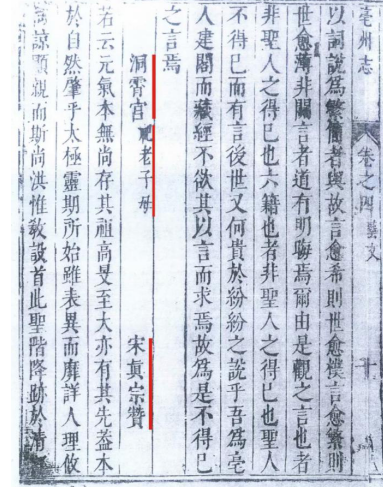 亳州志 卷之四 藝文 十
以詞說爲繁簡者與故言愈希則世愈樸言愈繁則
世愈薄非關言者道有明晦焉爾由是觀之言也者
非聖人之得已也六籍也者非聖人之得已也聖人
不得已而有言後世又何貴於紛紛之說乎吾爲亳
人建閣而藏經不欲其以言而求焉故爲是不得已
之言焉
洞霄宫 祀老子母 宋真宗贊
若云元氣本無尚存其祖高旻至大亦有其先葢本
於自然肇乎太極靈期所始雖表異而靡詳人理攸
諒顯親而斯尚洪惟敎設首此聖階降跡於清